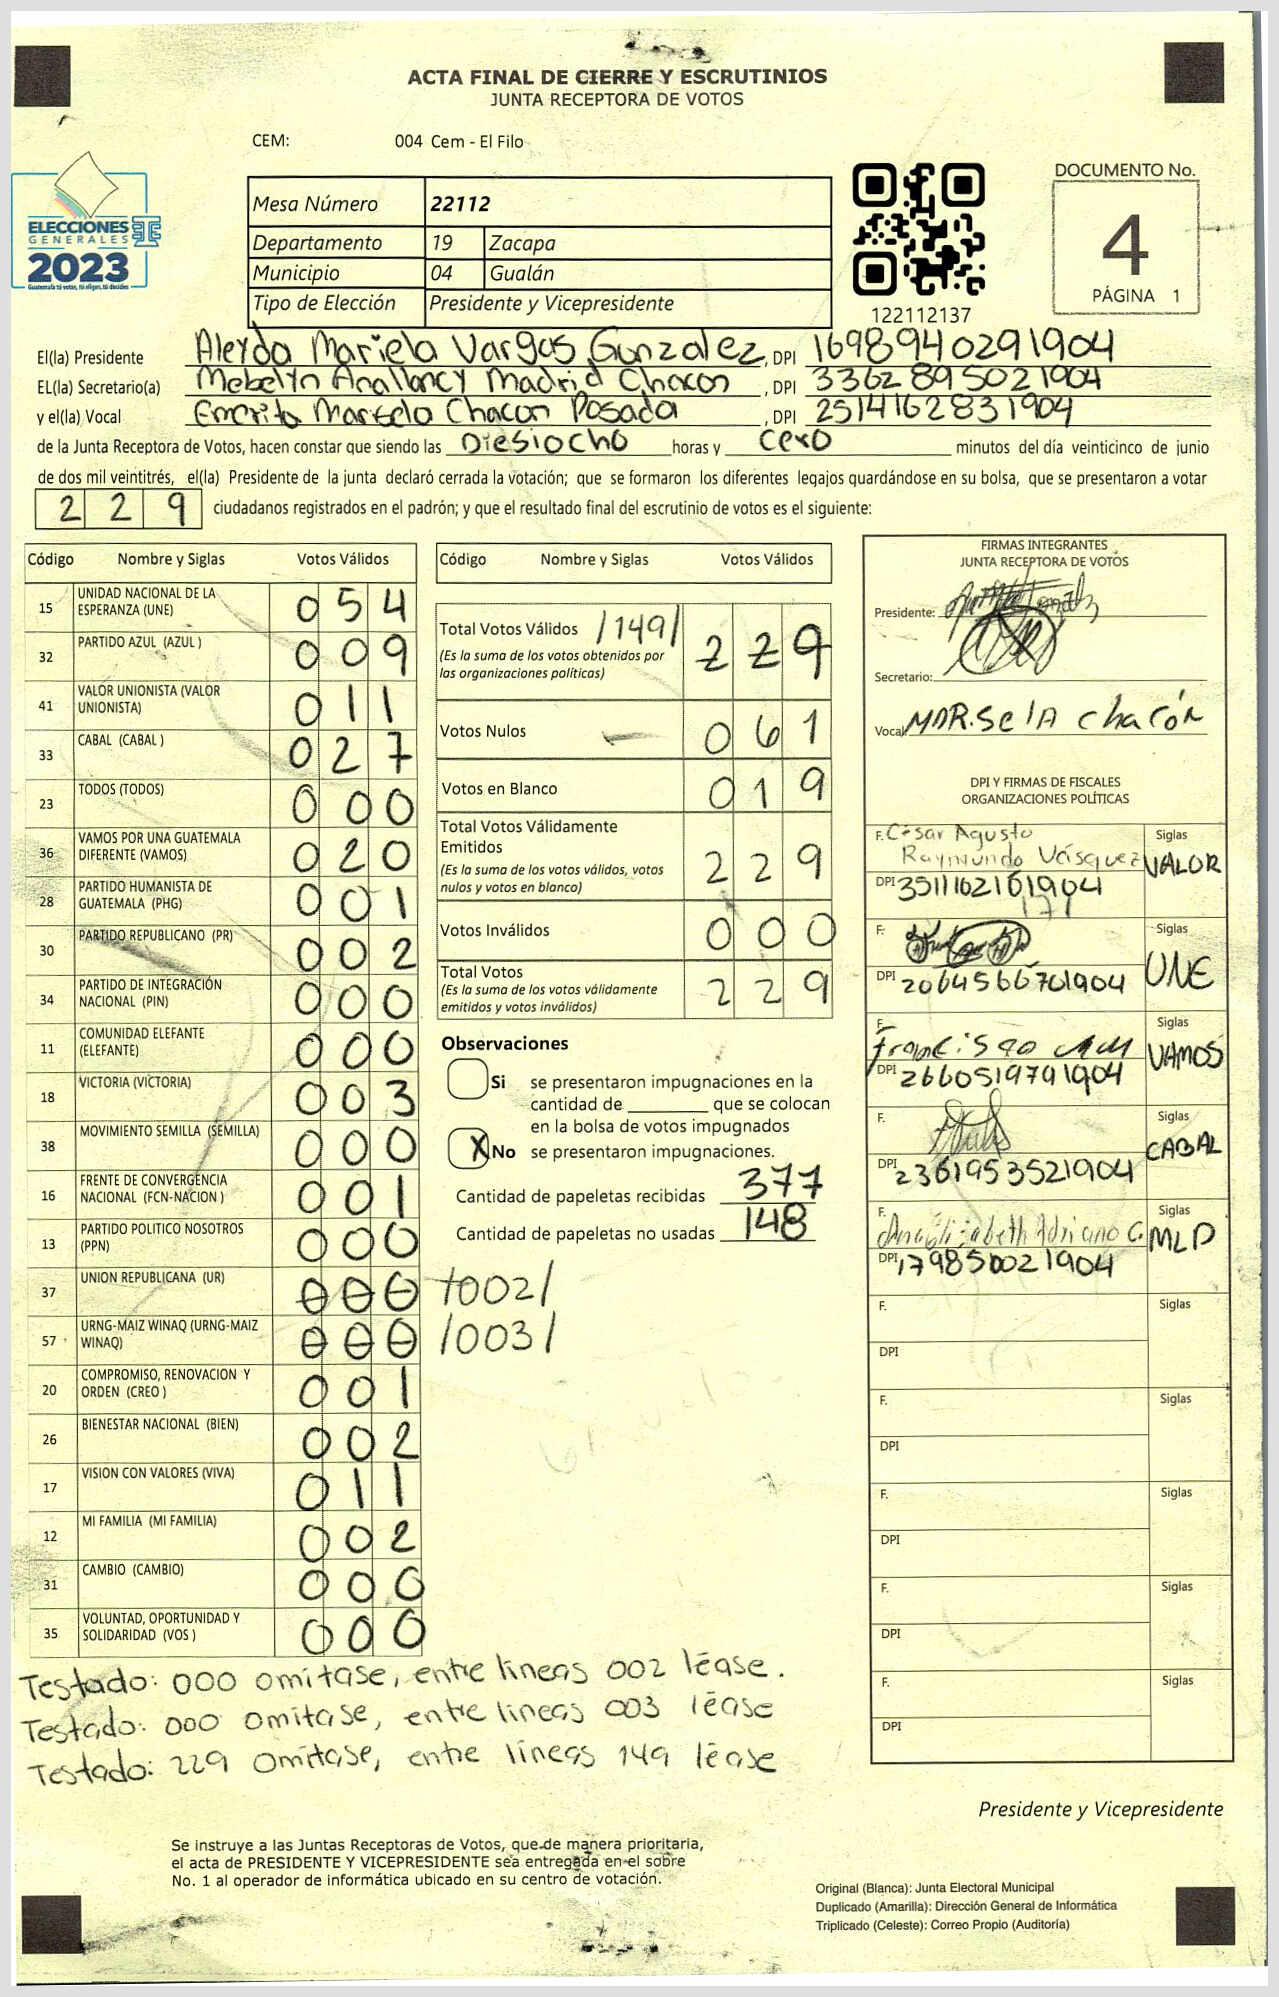 ACTA FINAL DE CIERRE Y ESCRUTINIOS
JUNTA RECEPTORA DE VOTOS
CEM: 004 Cem - El Filo
ELECCIONES
GENERALES
2023
Guatemala tú votas, tú eliges, tú decides
Mesa Número 22112
Departamento 19 Zacapa
Municipio 04 Gualán
Tipo de Elección Presidente y Vicepresidente
122112137
DOCUMENTO No.
4
PÁGINA 1
El(la) Presidente Aleyda Mariela Vargas Gonzalez, DPI 1698940291904
EL(la) Secretario(a) Madrid Chacon, DPI 3362895021904
y el(la) Vocal Emerita Marsela Chacon Posada, DPI 2514162831904
de la Junta Receptora de Votos, hacen constar que siendo las Diesiocho horas y cero minutos del día veinticinco de junio
de dos mil veintitrés, el(la) Presidente de la junta declaró cerrada la votación; que se formaron los diferentes legajos quardándose en su bolsa, que se presentaron a votar
229 ciudadanos registrados en el padrón; y que el resultado final del escrutinio de votos es el siguiente:
Código Nombre y Siglas Votos Válidos
15 UNIDAD NACIONAL DE LA ESPERANZA (UNE) 054
32 PARTIDO AZUL (AZUL ) 009
41 VALOR UNIONISTA (VALOR UNIONISTA) 011
33 CABAL (CABAL ) 027
23 TODOS (TODOS) 000
36 VAMOS POR UNA GUATEMALA DIFERENTE (VAMOS) 020
28 PARTIDO HUMANISTA DE GUATEMALA (PHG) 001
30 PARTIDO REPUBLICANO (PR) 002
34 PARTIDO DE INTEGRACIÓN NACIONAL (PIN) 000
11 COMUNIDAD ELEFANTE (ELEFANTE) 000
18 VICTORIA (VICTORIA) 003
38 MOVIMIENTO SEMILLA (SEMILLA) 000
16 FRENTE DE CONVERGENCIA NACIONAL (FCN-NACION ) 001
13 PARTIDO POLITICO NOSOTROS (PPN) 000
37 UNION REPUBLICANA (UR) 000 /002/
57 URNG-MAIZ WINAQ (URNG-MAIZ WINAQ) 000 /003/
20 COMPROMISO, RENOVACION Y ORDEN (CREO ) 001
26 BIENESTAR NACIONAL (BIEN) 002
17 VISION CON VALORES (VIVA) 011
12 MI FAMILIA (MI FAMILIA) 002
31 CAMBIO (CAMBIO) 000
35 VOLUNTAD, OPORTUNIDAD Y SOLIDARIDAD (VOS ) 000
Código Nombre y Siglas Votos Válidos
Total Votos Válidos /149/ 229
(Es la suma de los votos obtenidos por
las organizaciones políticas)
Votos Nulos 061
Votos en Blanco 019
Total Votos Válidamente
Emitidos 229
(Es la suma de los votos válidos, votos
nulos y votos en blanco)
Votos Inválidos 000
Total Votos 229
(Es la suma de los votos válidamente
emitidos y votos inválidos)
Observaciones
Si se presentaron impugnaciones en la
cantidad de ________ que se colocan
en la bolsa de votos impugnados
X No se presentaron impugnaciones.
Cantidad de papeletas recibidas 377
Cantidad de papeletas no usadas 148
FIRMAS INTEGRANTES
JUNTA RECEPTORA DE VOTOS
Presidente:
Secretario:
Vocal MARSelA chacón
DPI Y FIRMAS DE FISCALES
ORGANIZACIONES POLÍTICAS
F. César Agusto Siglas
Raymundo Vásquez VALOR
DPI 3511162161904
171
F. Siglas
DPI 2064566701904 UNE
F. Francisco Siglas
DPI 2660519791904 VAMOS
F. Siglas
DPI 2361953521904 CABAL
F. Ana Elizabeth Adriano C. Siglas
DPI 1798500021904 MLP
F. Siglas
DPI
F. Siglas
DPI
F. Siglas
DPI
F. Siglas
DPI
F. Siglas
DPI
Testado: 000 omitase, entre lineas 002 léase.
Testado: 000 omitase, entre lineas 003 léase
Testado: 229 omitase, entre líneas 149 léase
Presidente y Vicepresidente
Se instruye a las Juntas Receptoras de Votos, que de manera prioritaria,
el acta de PRESIDENTE Y VICEPRESIDENTE sea entregada en el sobre
No. 1 al operador de informática ubicado en su centro de votación.
Original (Blanca): Junta Electoral Municipal
Duplicado (Amarilla): Dirección General de Informática
Triplicado (Celeste): Correo Propio (Auditoría)